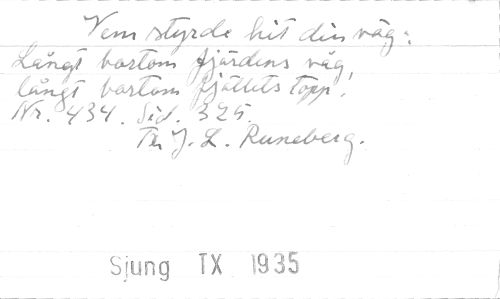 Vem styrde hit din väg:
Långt bortom fjärdens våg!
långt bortom fjällets topp!
Nr. 434. Sid. 325.
Tn J. L. Runeberg.
Sjung TX 1935